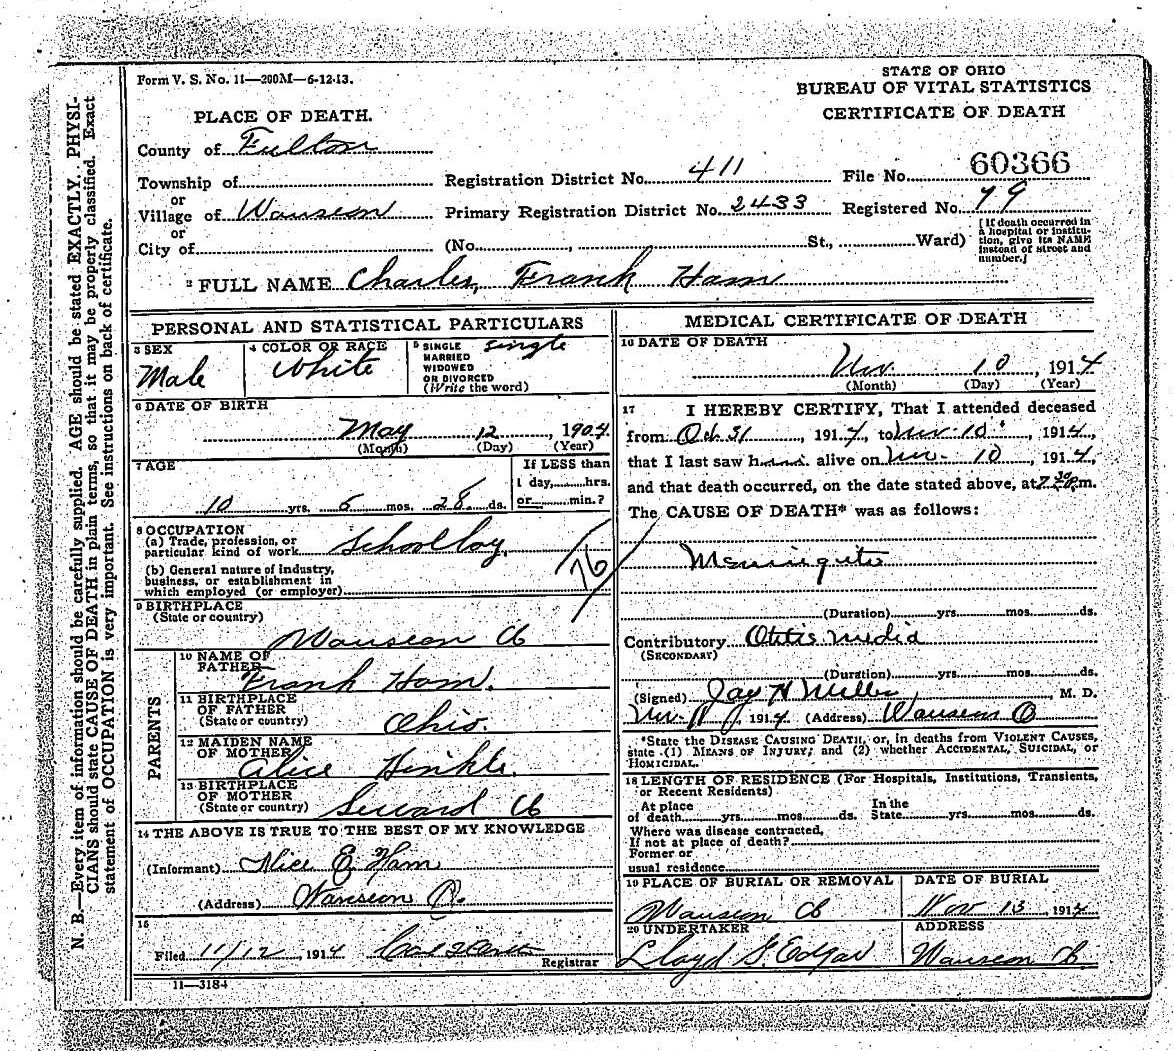 Form V. S. No. 11—200M—6-12-13.
STATE OF OHIO
BUREAU OF VITAL STATISTICS
CERTIFICATE OF DEATH
PLACE OF DEATH.
County of Fulton
Township of
or
Village of Wauseon
or
City of
Registration District No. 411
File No. 60366
Primary Registration District No. 2433
Registered No. 79
(No. , St., Ward)
[If death occurred in
a hospital or institu-
tion, give its NAME
instead of street and
number.]
2 FULL NAME Charles, Frank Ham
PERSONAL AND STATISTICAL PARTICULARS
3 SEX
Male
4 COLOR OR RACE
White
5 SINGLE
MARRIED
WIDOWED
OR DIVORCED
(Write the word)
single
6 DATE OF BIRTH
May 12, 1904
(Month) (Day) (Year)
7 AGE
10 yrs. 5 mos. 28 ds.
If LESS than
1 day, hrs.
or min.?
8 OCCUPATION
(a) Trade, profession, or
particular kind of work Schoolboy.
(b) General nature of industry,
business, or establishment in
which employed (or employer)
76
9 BIRTHPLACE
(State or country)
Wauseon O
PARENTS
10 NAME OF
FATHER
Frank Ham.
11 BIRTHPLACE
OF FATHER
(State or country)
Ohio.
12 MAIDEN NAME
OF MOTHER
Alice Hinkle.
13 BIRTHPLACE
OF MOTHER
(State or country)
Seward O
14 THE ABOVE IS TRUE TO THE BEST OF MY KNOWLEDGE
(Informant) Alice E. Ham
(Address) Wauseon O.
15
Filed 11/12, 1914
Registrar
11—3184
MEDICAL CERTIFICATE OF DEATH
16 DATE OF DEATH
Nov 10, 1914
(Month) (Day) (Year)
17 I HEREBY CERTIFY, That I attended deceased
from Oct 31, 1914, to Nov 10, 1914,
that I last saw him alive on Nov. 10, 1914,
and that death occurred, on the date stated above, at 7 30 P.m.
The CAUSE OF DEATH* was as follows:
Meningitis
(Duration) yrs. mos. ds.
Contributory Otitis Media
(SECONDARY)
(Duration) yrs. mos. ds.
(Signed) Jay H Miller, M. D.
Nov. 11 1914 (Address) Wauseon O
*State the DISEASE CAUSING DEATH, or, in deaths from VIOLENT CAUSES,
state (1) MEANS OF INJURY; and (2) whether ACCIDENTAL, SUICIDAL, or
HOMICIDAL.
18 LENGTH OF RESIDENCE (For Hospitals, Institutions, Transients,
or Recent Residents)
At place
of death yrs. mos. ds.
In the
State yrs. mos. ds.
Where was disease contracted,
If not at place of death?
Former or
usual residence
19 PLACE OF BURIAL OR REMOVAL
Wauseon O
DATE OF BURIAL
Nov 13, 1914
20 UNDERTAKER
Lloyd G. Edgar
ADDRESS
Wauseon O.
N. B.—Every item of information should be carefully supplied. AGE should be stated EXACTLY. PHYSI-
CIANS should state CAUSE OF DEATH in plain terms, so that it may be properly classified. Exact
statement of OCCUPATION is very important. See instructions on back of certificate.